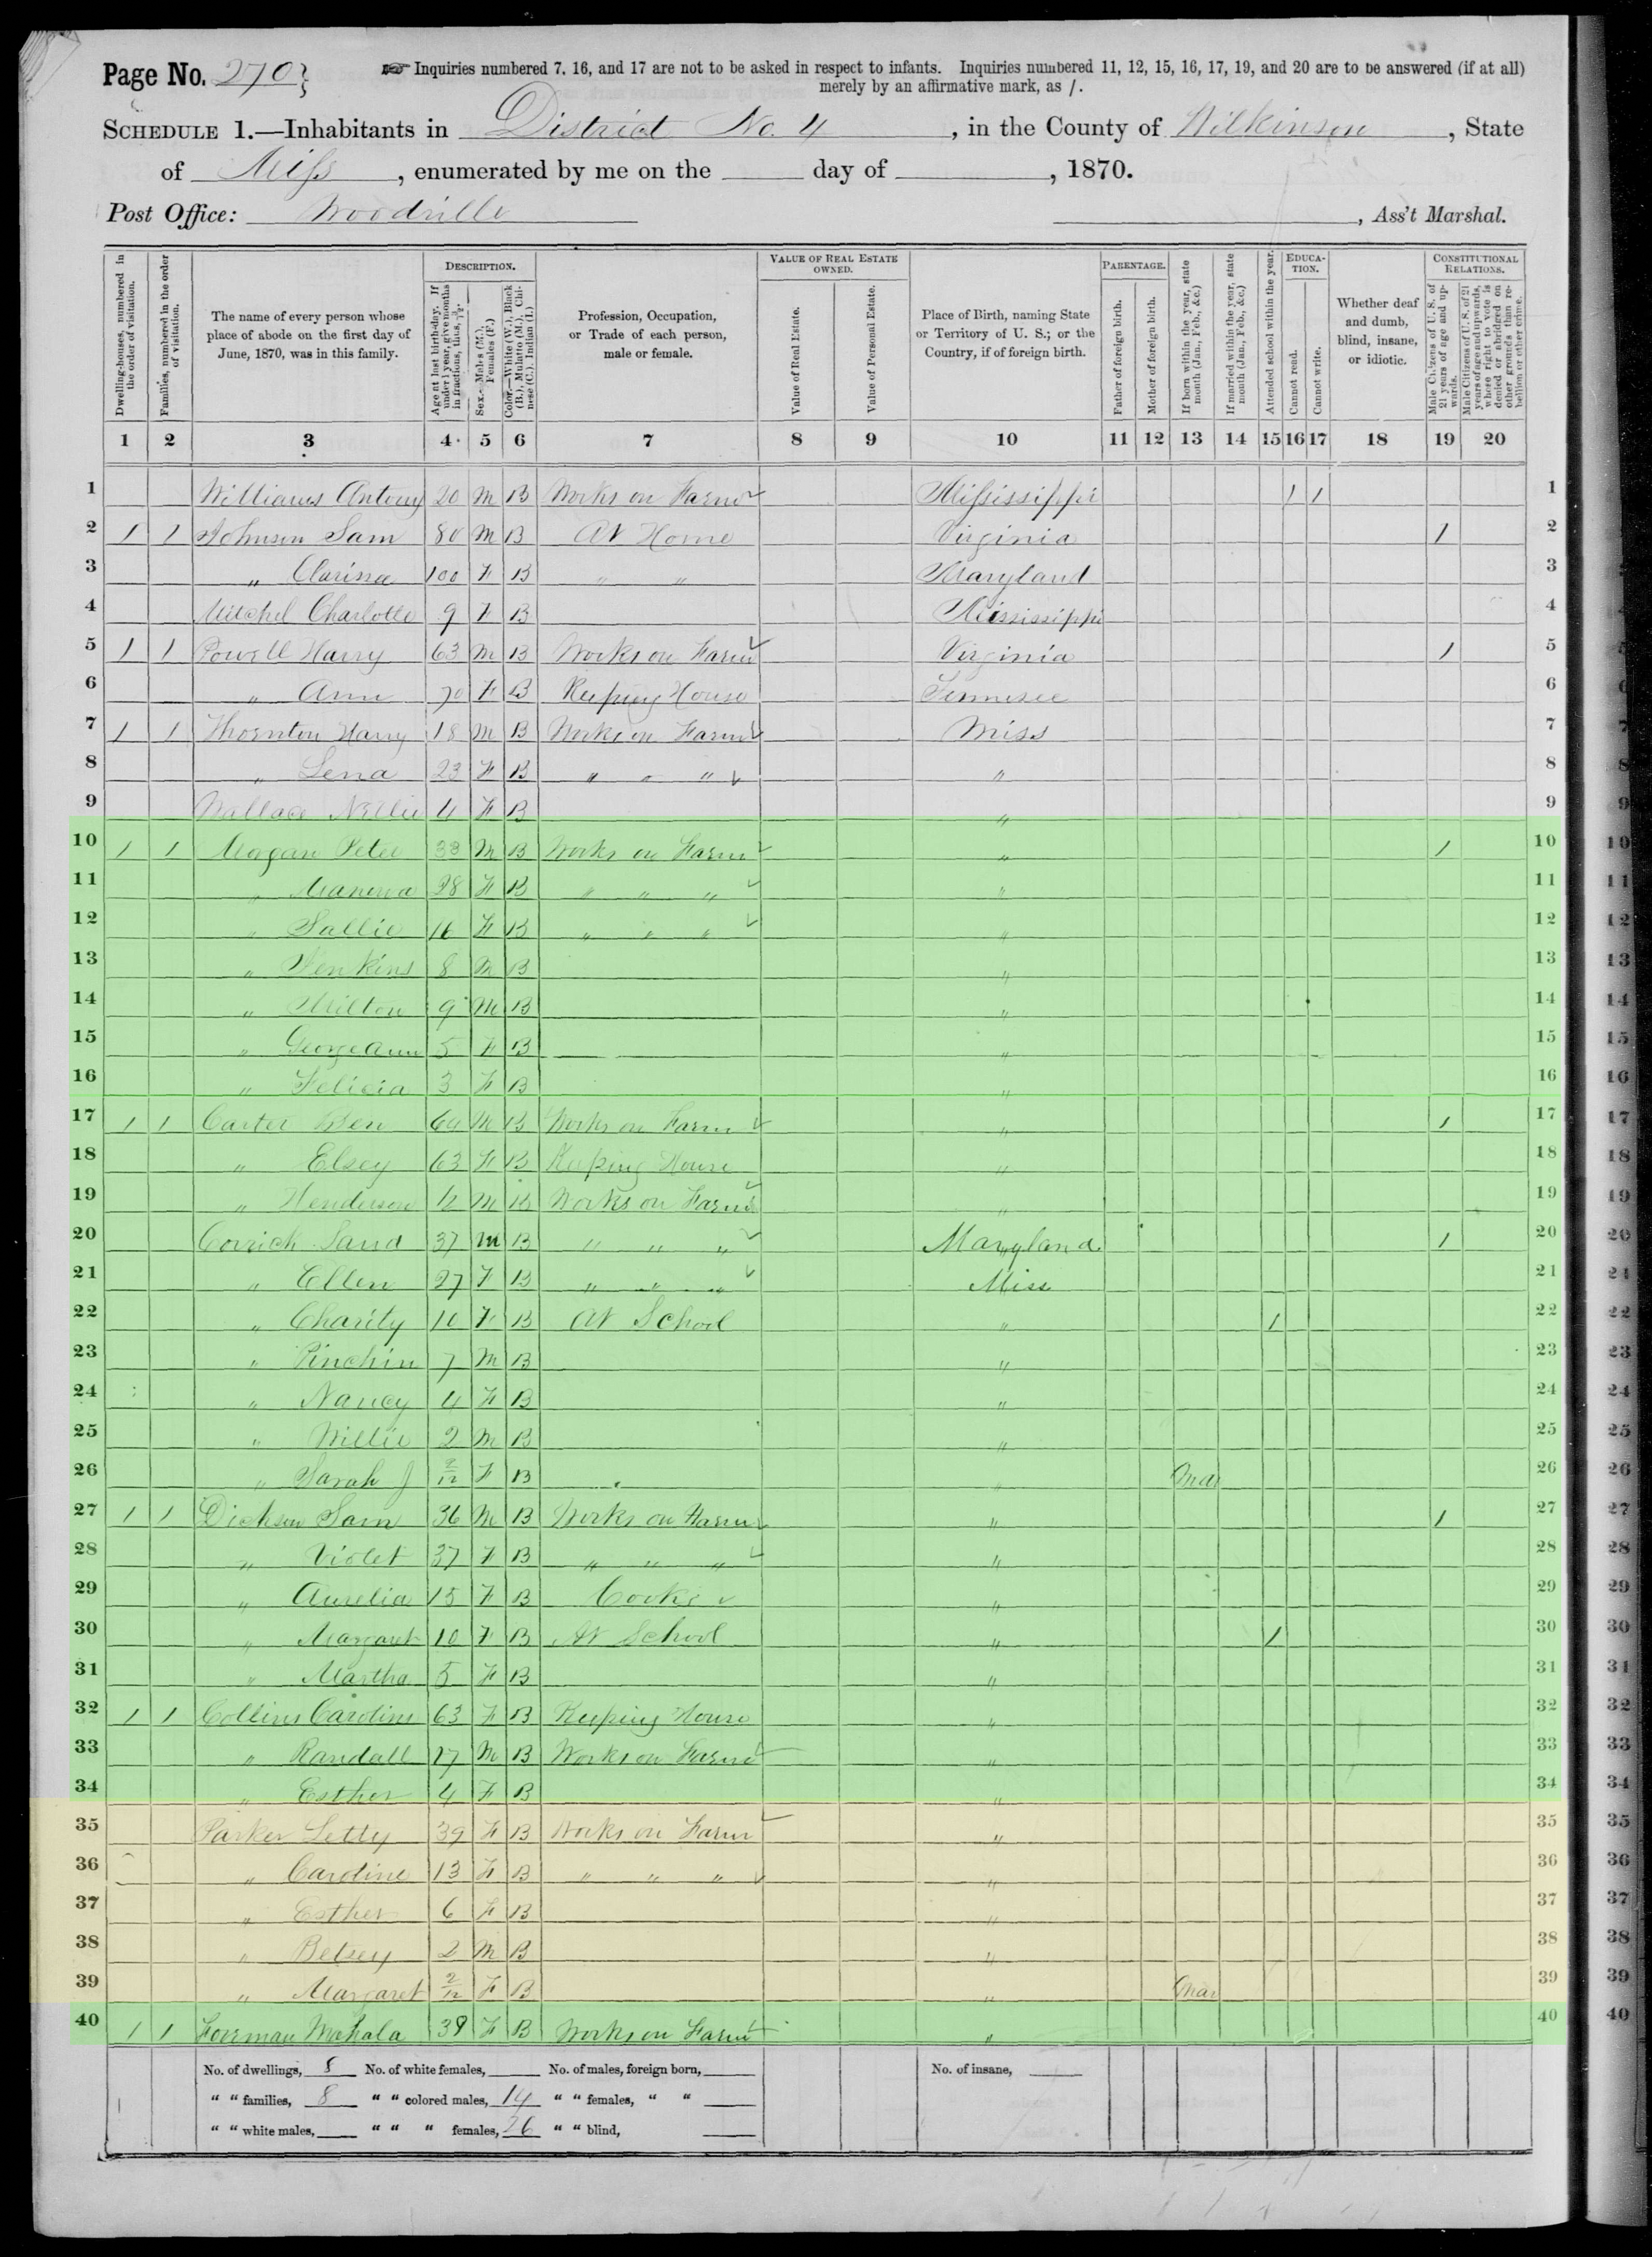 Page No. 270
Inquiries numbered 7, 16, and 17 are not to be asked in respect to infants. Inquiries numbered 11, 12, 15, 16, 17, 19, and 20 are to be answered (if at all)
merely by an affirmative mark, as /.
SCHEDULE 1.—Inhabitants in District No. 4, in the County of Wilkinson, State
of Miss, enumerated by me on the ____ day of ____, 1870.
Post Office: Woodville ____, Ass't Marshal.
Dwelling-houses, numbered in the order of visitation.
Families, numbered in the order of visitation.
The name of every person whose place of abode on the first day of June, 1870, was in this family.
DESCRIPTION.
Age at last birth-day. If under 1 year, give months in fractions, thus, 3/12.
Sex.—Males (M.), Females (F.)
Color.—White (W.), Black (B.), Mulatto (M.), Chinese (C.), Indian (I.)
Profession, Occupation, or Trade of each person, male or female.
VALUE OF REAL ESTATE OWNED.
Value of Real Estate.
Value of Personal Estate.
Place of Birth, naming State or Territory of U. S.; or the Country, if of foreign birth.
PARENTAGE.
Father of foreign birth.
Mother of foreign birth.
If born within the year, state month (Jan., Feb., &c.)
If married within the year, state month (Jan., Feb., &c.)
Attended school within the year.
EDUCATION.
Cannot read.
Cannot write.
Whether deaf and dumb, blind, insane, or idiotic.
CONSTITUTIONAL RELATIONS.
Male Citizens of U. S. of 21 years of age and upwards.
Male Citizens of U. S. of 21 years of age and upwards, whose right to vote is denied or abridged on other grounds than rebellion or other crime.
1 2 3 4 5 6 7 8 9 10 11 12 13 14 15 16 17 18 19 20
1 Williams Antony 20 M B Works on Farm Mississippi 1 1 1
2 1 1 Johnson Sam 80 M B At Home Virginia 1 2
3 " Clarissa 100 F B " " Maryland 3
4 Mitchel Charlotte 9 F B Mississippi 4
5 1 1 Powell Harry 63 M B Works on Farm Virginia 1 5
6 " Ann 70 F B Keeping House Tennesee 6
7 1 1 Thornton Harry 18 M B Works on Farm Miss 7
8 " Lena 23 F B " " " " 8
9 Wallace Nellie 4 F B " 9
10 1 1 Magan Peter 38 M B Works on Farm " 1 10
11 " Manerva 28 F B " " " " 11
12 " Sallie 16 F B " " " " 12
13 " Jenkins 8 M B " 13
14 " Milton 9 M B " 14
15 " George Ann 5 F B " 15
16 " Felicia 3 F B " 16
17 1 1 Carter Ben 64 M B Works on Farm " 1 17
18 " Elsey 63 F B Keeping House " 18
19 " Henderson 12 M B Works on Farm " 19
20 Corrich Sand 37 M B " " " Maryland 1 20
21 " Ellen 27 F B " " " Miss 21
22 " Charity 10 F B At School " 1 22
23 " Pinchin 7 M B " 23
24 " Nancy 4 F B " 24
25 " Willie 2 M B " 25
26 " Sarah J 2/12 F B " Mar 26
27 1 1 Dickson Sam 36 M B Works on Farm " 1 27
28 " Violet 37 F B " " " " 28
29 " Aurelia 15 F B Cooks " 29
30 " Margaret 10 F B At School " 1 30
31 " Martha 5 F B " 31
32 1 1 Collins Caroline 63 F B Keeping House " 32
33 " Randall 17 M B Works on Farm " 33
34 " Esther 4 F B " 34
35 Parker Letty 39 F B Works on Farm " 35
36 " Caroline 13 F B " " " " 36
37 " Esther 6 F B " 37
38 " Betsey 2 M B " 38
39 " Margaret 2/12 F B " Mar 39
40 1 1 Foreman Mahala 39 F B Works on Farm " 40
No. of dwellings, 8 No. of white females, ____ No. of males, foreign born, ____ No. of insane, ____
" " families, 8 " " colored males, 14 " " females, " " ____
" " white males, ____ " " " females, 26 " " blind, ____